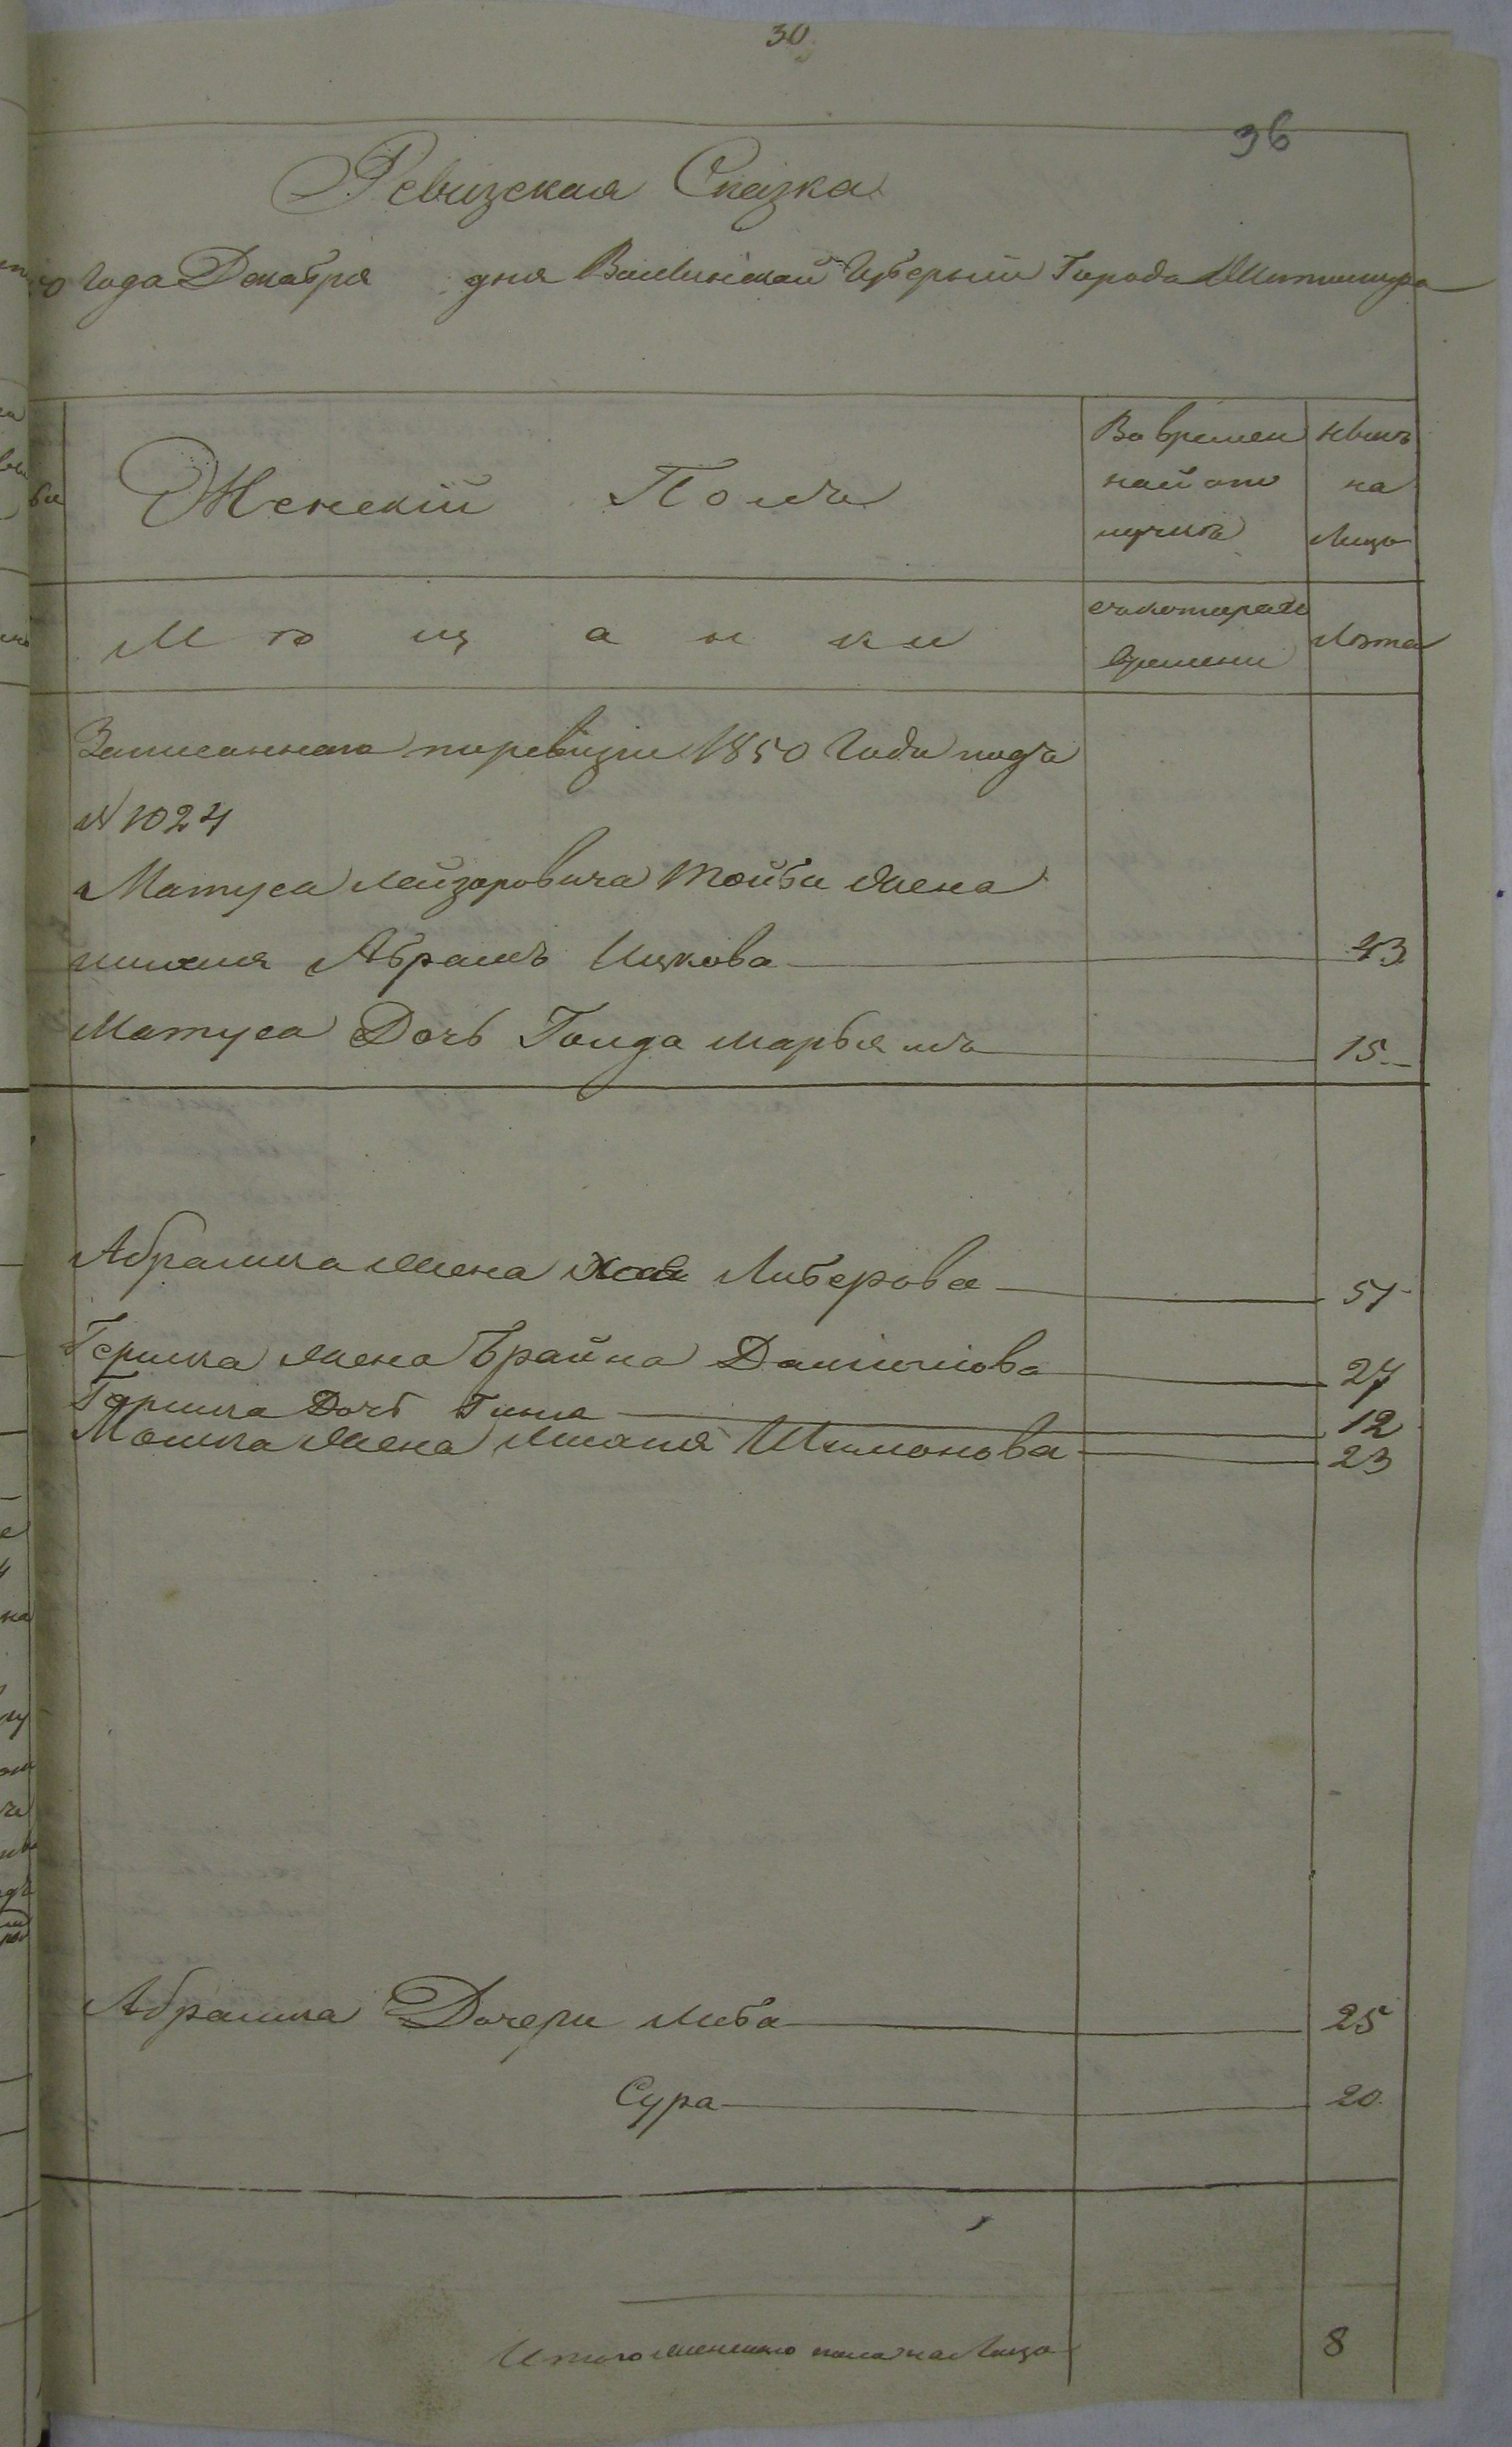 30
36
Ревизская Сказка
Года Декабря дня Волынской Губерыии Города Житомира
Женский Полъ
Во времен
ной от
лучкѣ
Нынѣ
на
Лицо
Мѣщанки
съкотораго
времени
Лѣта
Записанного поревизии 1850 Года подъ
№ 1024
Матуса Лейзоровича Тойби Жена
Абрамъ Ицкова 43
Матуса Дочь Голда Марьямъ 15
Абрамка Жена Хая Либерова 51
Гершка Жена Брайна Данилова 27
Гершка Дочь Гиня 12
Мошка Жена Шимонова 23
Абрамка Дочери Либа 25
Сура 20
Итого женского пола на Лицо 8